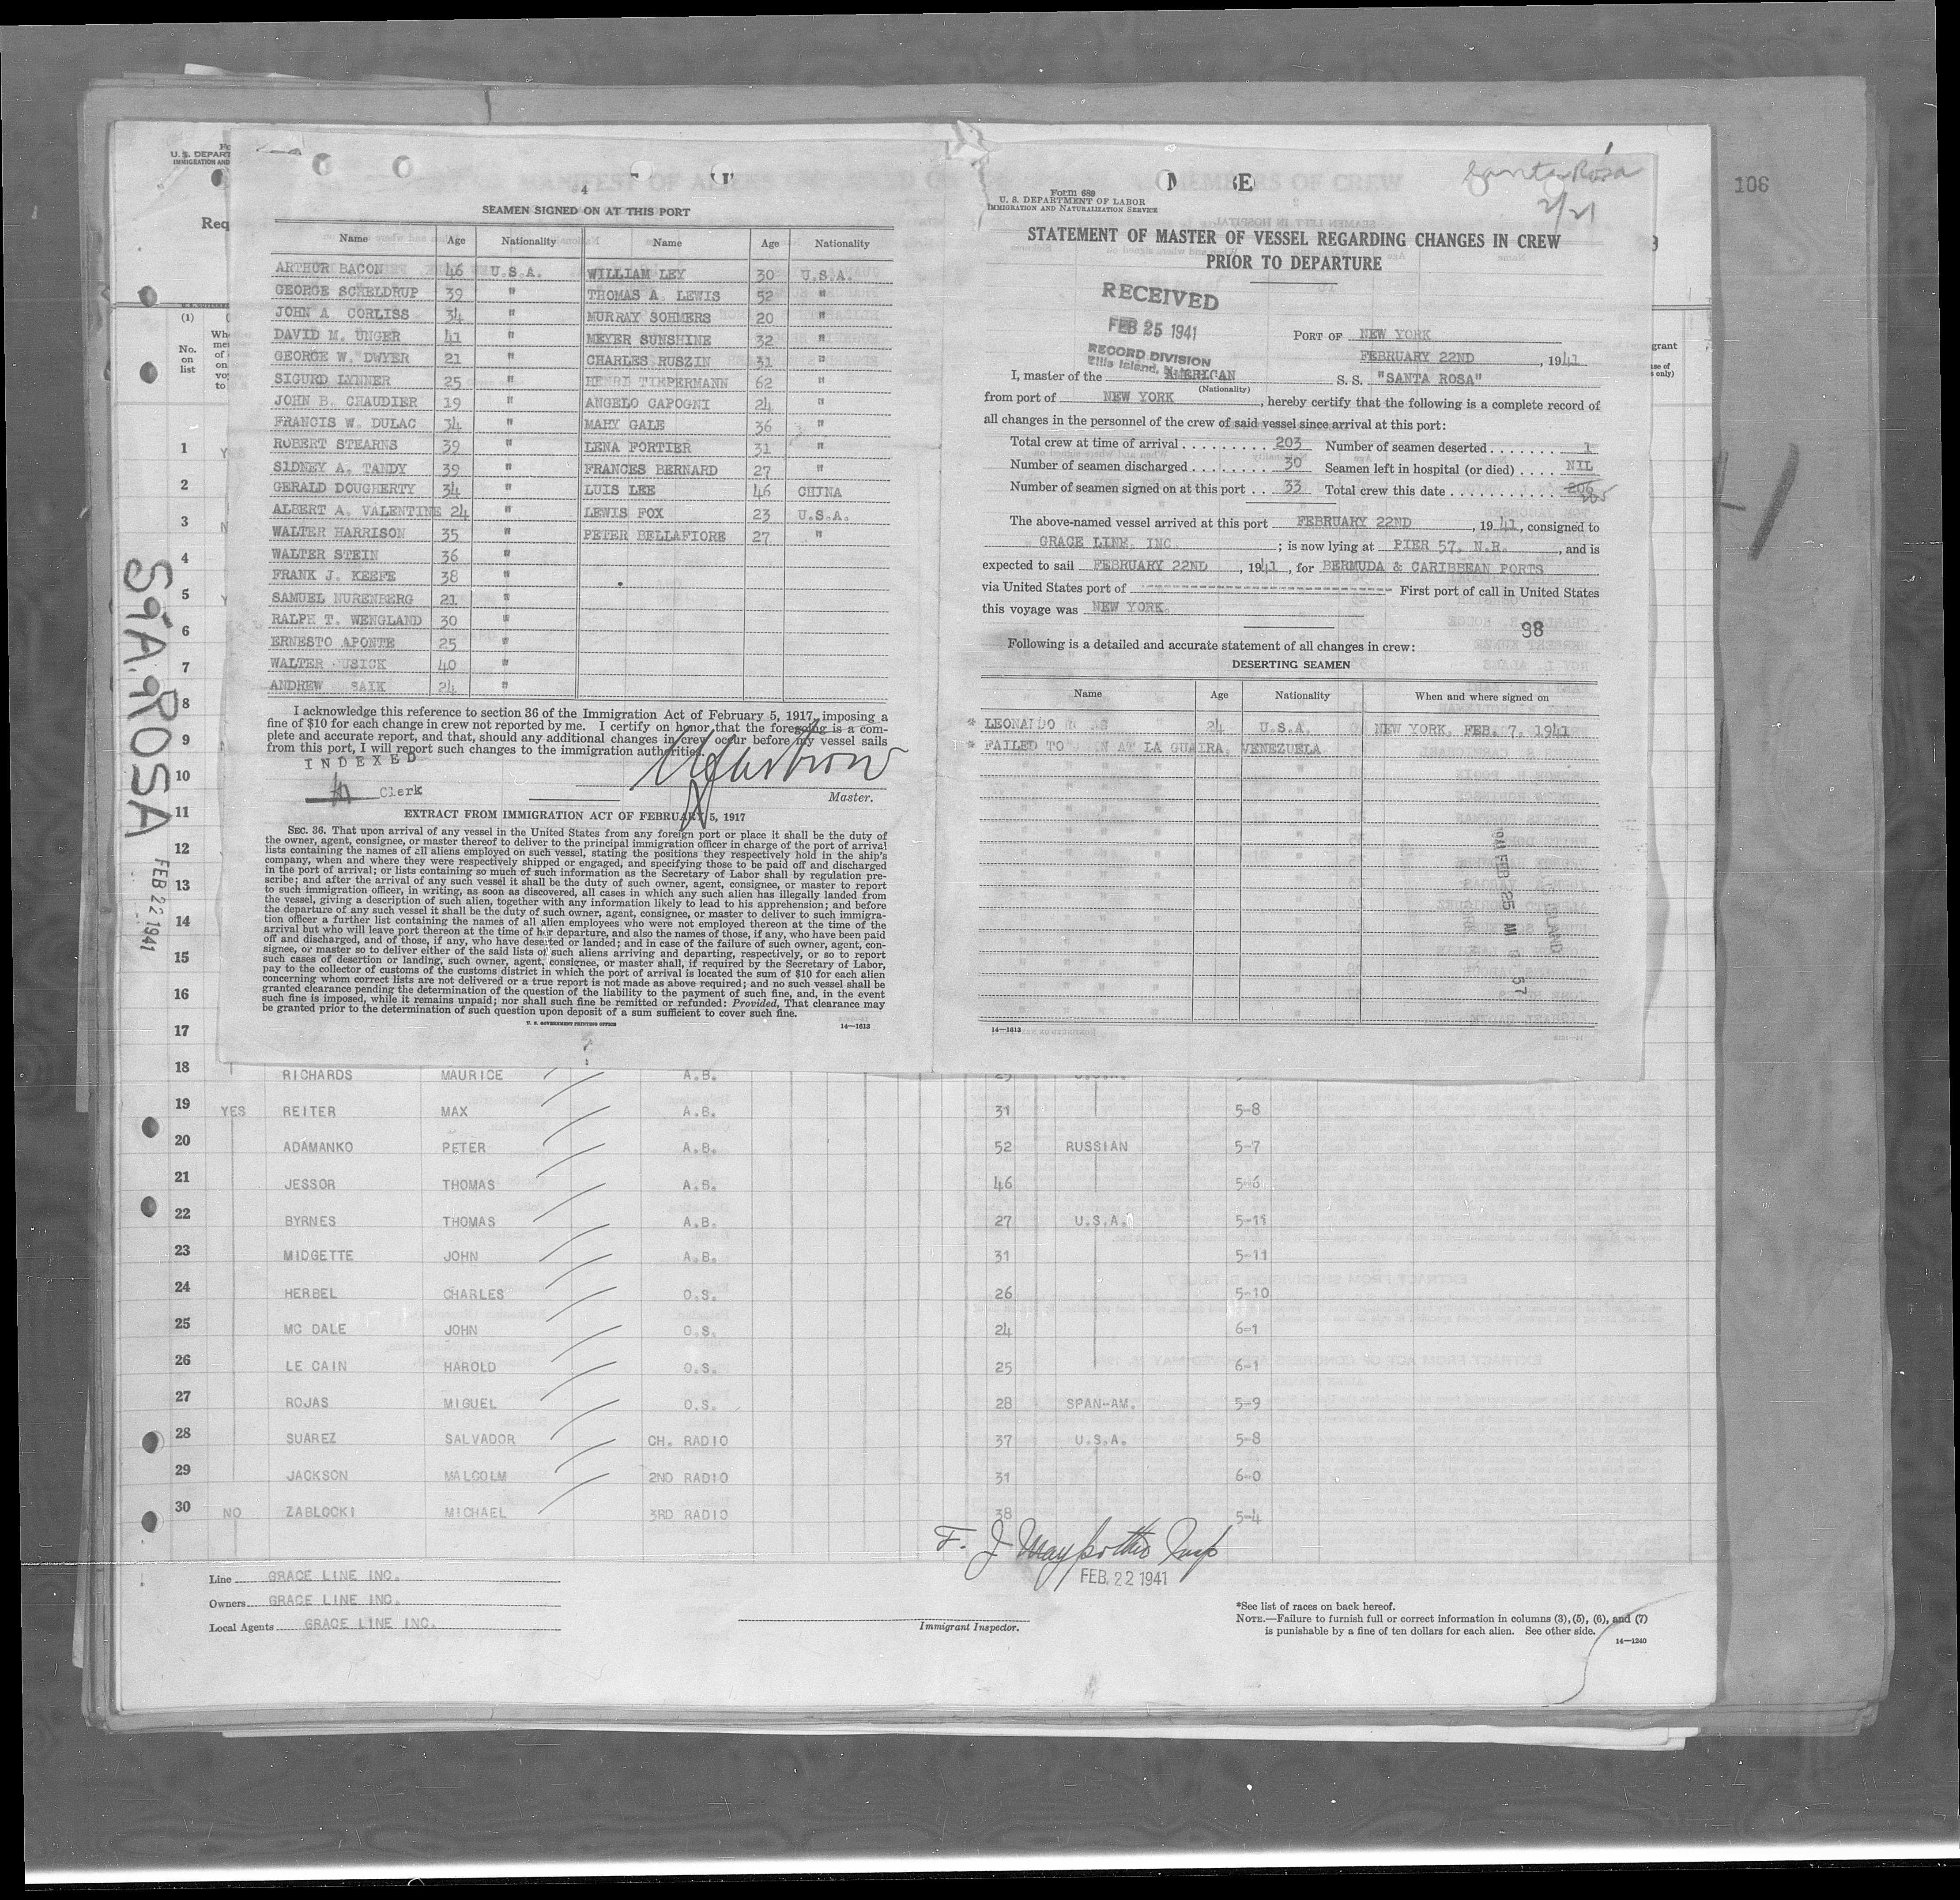 4
SEAMEN SIGNED ON AT THIS PORT
Name Age Nationality Name Age Nationality
ARTHUR BACON 46 U.S.A. WILLIAM LEY 30 U.S.A.
GEORGE SCHELDRUP 39 " THOMAS A. LEWIS 52 "
JOHN A. CORLISS 34 " MURRAY SOHMERS 20 "
DAVID M. UNGER 41 " MEYER SUNSHINE 32 "
GEORGE W. DWYER 21 " CHARLES RUSZIN 31 "
SIGURD LYNNER 25 " HENRI TIMPERMANN 62 "
JOHN B. CHAUDIER 19 " ANGELO CAPOGNI 24 "
FRANCIS W. DULAC 34 " MARY GALE 36 "
ROBERT STEARNS 39 " LENA FORTIER 31 "
SIDNEY A. TANDY 39 " FRANCES BERNARD 27 "
GERALD DOUGHERTY 34 " LUIS LEE 46 CHINA
ALBERT A. VALENTINE 24 " LEWIS FOX 23 U.S.A.
WALTER HARRISON 35 " PETER BELLAFIORE 27 "
WALTER STEIN 36 "
FRANK J. KEEFE 38 "
SAMUEL NURENBERG 21 "
RALPH T. WENGLAND 30 "
ERNESTO APONTE 25 "
WALTER USICK 40 "
ANDREW SAIK 24 "
I acknowledge this reference to section 36 of the Immigration Act of February 5, 1917, imposing a
fine of $10 for each change in crew not reported by me. I certify on honor that the foregoing is a com-
plete and accurate report, and that, should any additional changes in crew occur before my vessel sails
from this port, I will report such changes to the immigration authorities.
INDEXED
Clerk
Master.
EXTRACT FROM IMMIGRATION ACT OF FEBRUARY 5, 1917
SEC. 36. That upon arrival of any vessel in the United States from any foreign port or place it shall be the duty of
the owner, agent, consignee, or master thereof to deliver to the principal immigration officer in charge of the port of arrival
lists containing the names of all aliens employed on such vessel, stating the positions they respectively hold in the ship's
company, when and where they were respectively shipped or engaged, and specifying those to be paid off and discharged
in the port of arrival; or lists containing so much of such information as the Secretary of Labor shall by regulation pre-
scribe; and after the arrival of any such vessel it shall be the duty of such owner, agent, consignee, or master to report
to such immigration officer, in writing, as soon as discovered, all cases in which any such alien has illegally landed from
the vessel, giving a description of such alien, together with any information likely to lead to his apprehension; and before
the departure of any such vessel it shall be the duty of such owner, agent, consignee, or master to deliver to such immigra-
tion officer a further list containing the names of all alien employees who were not employed thereon at the time of the
arrival but who will leave port thereon at the time of her departure, and also the names of those, if any, who have been paid
off and discharged, and of those, if any, who have deserted or landed; and in case of the failure of such owner, agent, con-
signee, or master so to deliver either of the said lists of such aliens arriving and departing, respectively, or so to report
such cases of desertion or landing, such owner, agent, consignee, or master shall, if required by the Secretary of Labor,
pay to the collector of customs of the customs district in which the port of arrival is located the sum of $10 for each alien
concerning whom correct lists are not delivered or a true report is not made as above required; and no such vessel shall be
granted clearance pending the determination of the question of the liability to the payment of such fine, and, in the event
such fine is imposed, while it remains unpaid; nor shall such fine be remitted or refunded: Provided, That clearance may
be granted prior to the determination of such question upon deposit of a sum sufficient to cover such fine.
U. S. GOVERNMENT PRINTING OFFICE 14—1613
Santa Rosa
2/21
106
Form 689
U. S. DEPARTMENT OF LABOR
IMMIGRATION AND NATURALIZATION SERVICE
STATEMENT OF MASTER OF VESSEL REGARDING CHANGES IN CREW
PRIOR TO DEPARTURE
RECEIVED
FEB 25 1941
RECORD DIVISION
Ellis Island,
PORT OF NEW YORK
FEBRUARY 22ND, 1941
I, master of the AMERICAN S. S. "SANTA ROSA"
(Nationality)
from port of NEW YORK, hereby certify that the following is a complete record of
all changes in the personnel of the crew of said vessel since arrival at this port:
Total crew at time of arrival 203 Number of seamen deserted 1
Number of seamen discharged 30 Seamen left in hospital (or died) NIL
Number of seamen signed on at this port 33 Total crew this date 206 205
The above-named vessel arrived at this port FEBRUARY 22ND, 1941, consigned to
GRACE LINE, INC.; is now lying at PIER 57, N.R., and is
expected to sail FEBRUARY 22ND, 1941, for BERMUDA & CARIBBEAN PORTS
via United States port of First port of call in United States
this voyage was NEW YORK.
98
Following is a detailed and accurate statement of all changes in crew:
DESERTING SEAMEN
Name Age Nationality When and where signed on
* LEONALDO 24 U.S.A. NEW YORK, FEB. 7, 1941
* FAILED TO AT LA GUAIRA, VENEZUELA
14—1613
U. S. DEPART
IMMIGRATION AND
Req
(1)
No.
on
list
STA. ROSA
FEB 22 1941
1
2
3
4
5
6
7
8
9
10
11
12
13
14
15
16
17
18 RICHARDS MAURICE A.B.
19 YES REITER MAX A.B. 31 5-8
20 ADAMANKO PETER A.B. 52 RUSSIAN 5-7
21 JESSOR THOMAS A.B. 46 5-6
22 BYRNES THOMAS A.B. 27 U.S.A. 5-11
23 MIDGETTE JOHN A.B. 31 5-11
24 HERBEL CHARLES O.S. 26 5-10
25 MC DALE JOHN O.S. 24 6-1
26 LE CAIN HAROLD O.S. 25 6-1
27 ROJAS MIGUEL O.S. 28 SPAN-AM. 5-9
28 SUAREZ SALVADOR CH. RADIO 37 U.S.A. 5-8
29 JACKSON MALCOLM 2ND RADIO 31 6-0
30 NO ZABLOCKI MICHAEL 3RD RADIO 38 5-4
F. J. Insp
FEB. 22 1941
Line GRACE LINE INC.
Owners GRACE LINE INC.
Local Agents GRACE LINE INC.
Immigrant Inspector.
*See list of races on back hereof.
NOTE.—Failure to furnish full or correct information in columns (3), (5), (6), and (7)
is punishable by a fine of ten dollars for each alien. See other side.
14—1240